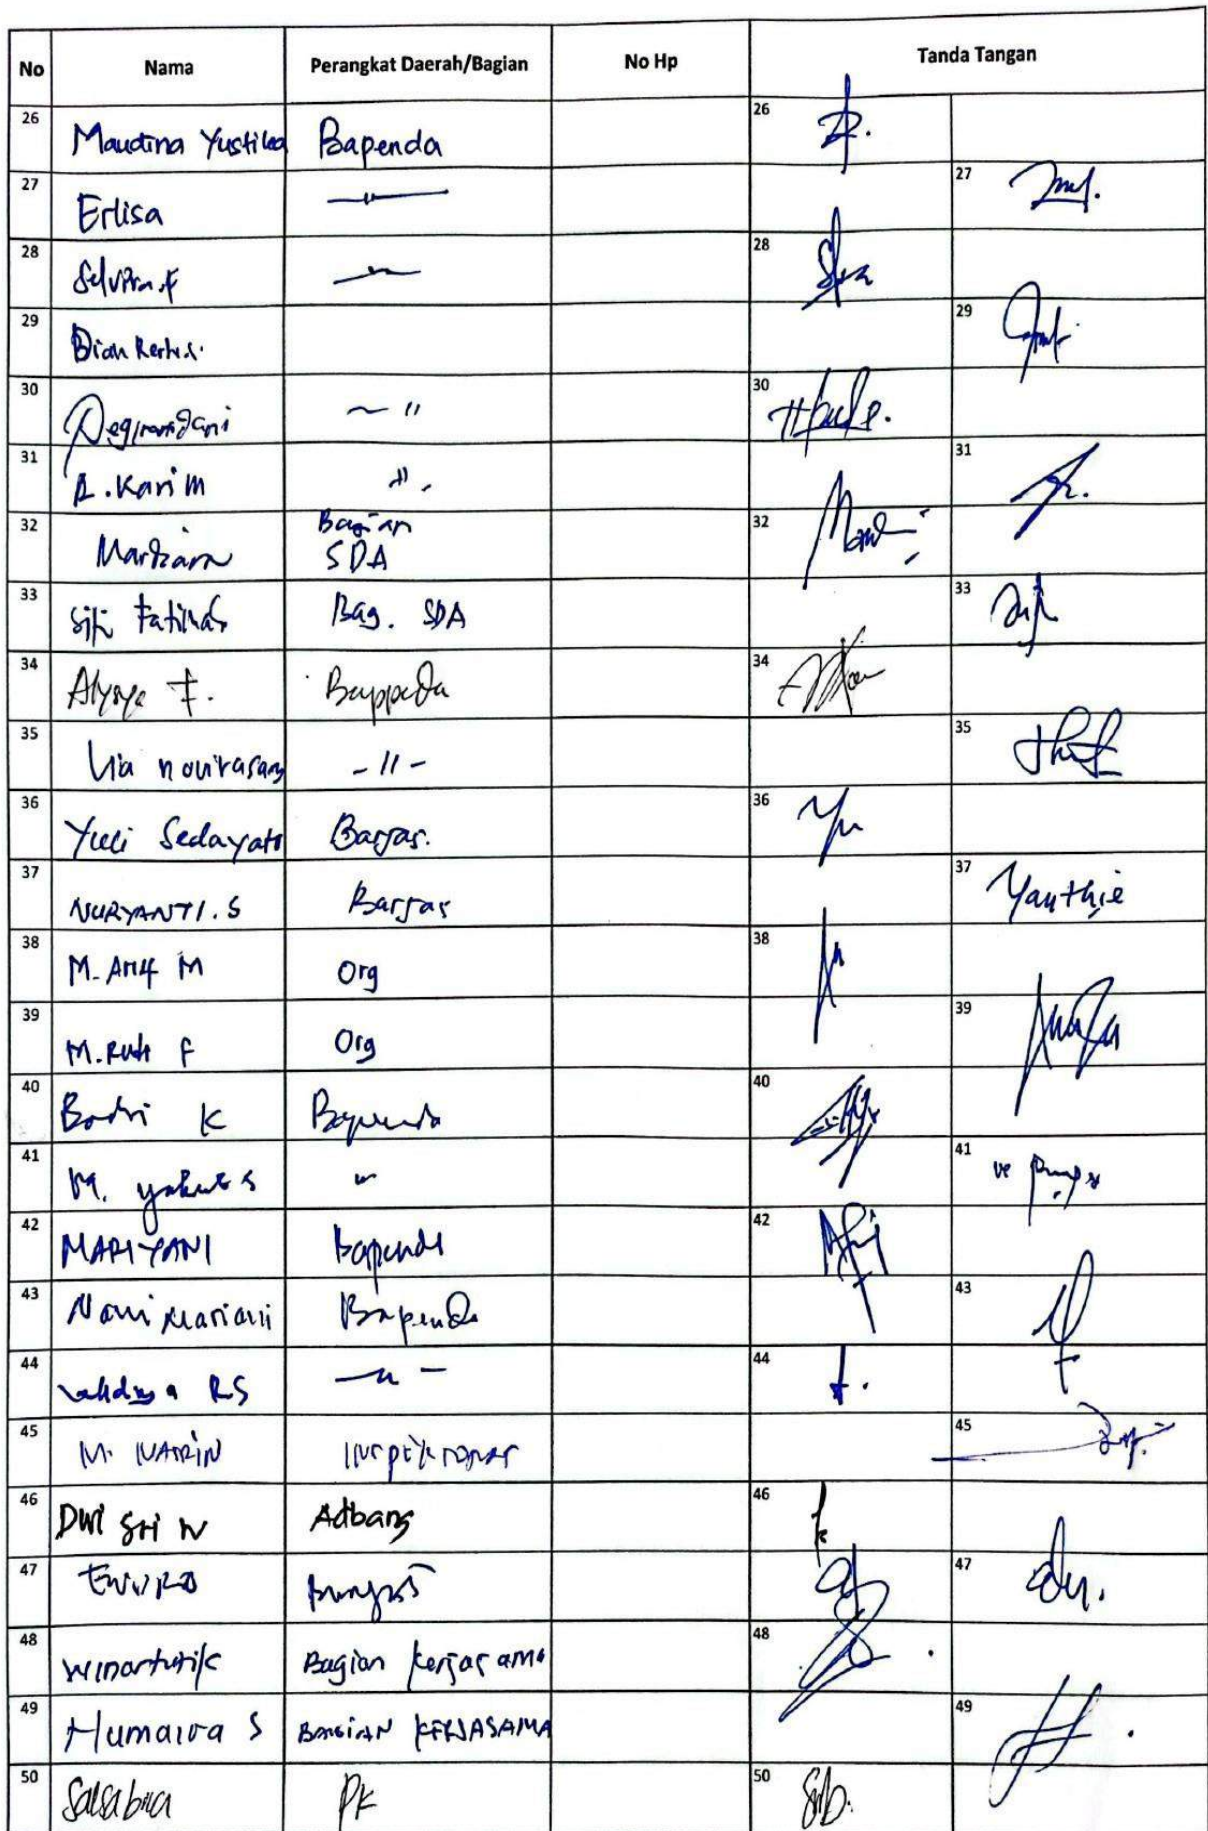 No Nama Perangkat Daerah/Bagian No Hp Tanda Tangan
26 Maudina Yustika Bapenda 26
27 Erlisa —"— 27
28 Selvira.F —"— 28
29 Dian 29
30 — " 30
31 A. Karim " 31
32 Bagian SDA 32
33 Siti Fatimah Bag. SDA 33
34 Alysya F. Bappeda 34
35 Lia novitasary - 11 - 35
36 Yuli Sedayato Barjas. 36
37 NURYANTI. S Barjas 37 Yanthie
38 M. Arif M Org 38
39 M. F Org 39
40 Badri K Bapenda 40
41 M. " 41
42 MARIYANI Bapenda 42
43 Novi Mariani Bapenda 43
44 RS —"— 44
45 M. 45
46 Dwi Sri W Adbang 46
47 47
48 Winartutik Bagian Kerjasama 48
49 Humaira S BAGIAN KERJASAMA 49
50 Salsabila PK 50